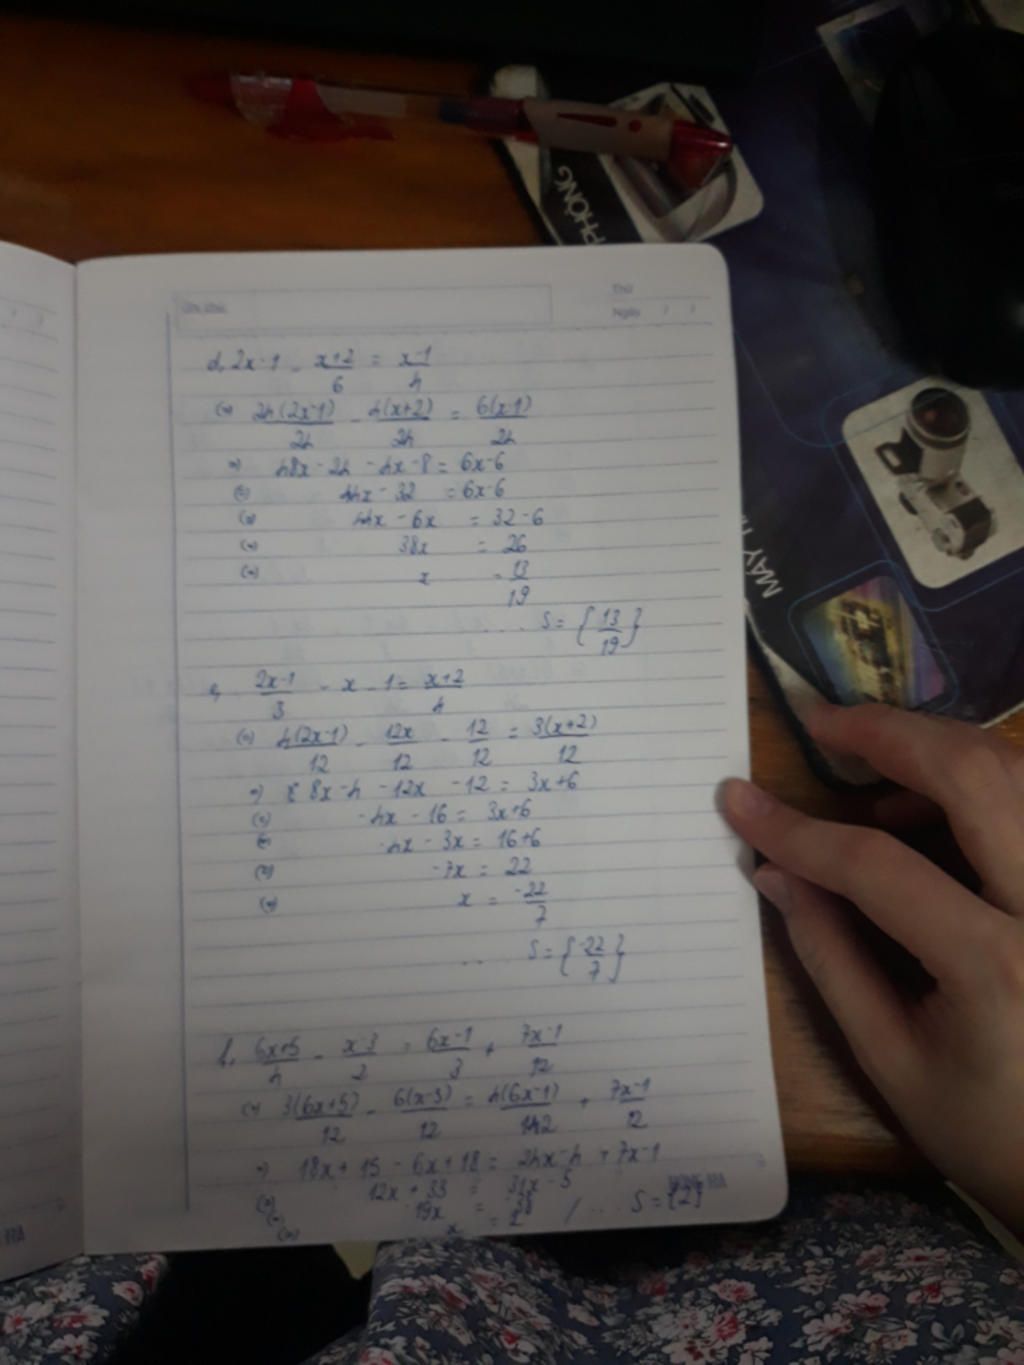 PHÒNG
Thứ
Ngày / /
d, 2x-1 - \frac{x+2}{6} = \frac{x-1}{4}
(=) \frac{24(2x-1)}{24} - \frac{4(x+2)}{24} = \frac{6(x-1)}{24}
=) 48x - 24 - 4x - 8 = 6x - 6
(=) 44x - 32 = 6x - 6
(=) 44x - 6x = 32 - 6
(=) 38x = 26
(=) x = \frac{13}{19}
... S = {\frac{13}{19}}
MÁY
e, \frac{2x-1}{3} - x - 1 = \frac{x+2}{4}
(=) \frac{4(2x-1)}{12} - \frac{12x}{12} - \frac{12}{12} = \frac{3(x+2)}{12}
=) 8x - 4 - 12x - 12 = 3x + 6
(=) -4x - 16 = 3x + 6
(=) -4x - 3x = 16 + 6
(=) -7x = 22
(=) x = \frac{-22}{7}
... S = {\frac{-22}{7}}
f, \frac{6x+5}{4} - \frac{x-3}{2} = \frac{6x-1}{3} + \frac{7x-1}{12}
(=) \frac{3(6x+5)}{12} - \frac{6(x-3)}{12} = \frac{4(6x-1)}{12} + \frac{7x-1}{12}
=) 18x + 15 - 6x + 18 = 24x - 4 + 7x - 1
(=) 12x + 33 = 31x - 5
(=) 19x = 38
(=) x = 2 / ... S = {2}
HÀ